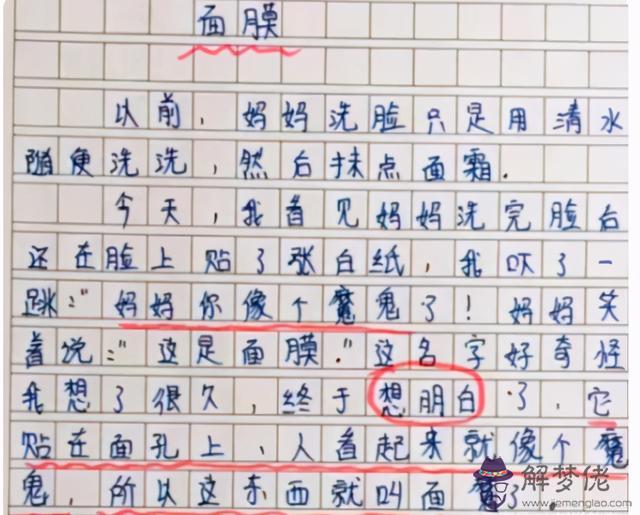 面膜
以前，妈妈洗脸只是用清水
随便洗洗，然后抹点面霜.
今天，我看见妈妈洗完脸后
还在脸上贴了张白纸，我吓了一
跳："妈妈你像个魔鬼了！妈妈笑
着说："这是面膜."这名字好奇怪
我想了很久，终于想明白了，它
贴在面孔上，人看起来就像个魔
鬼，所以这东西就叫面魔了.
解梦佬
www.jiemenglao.com